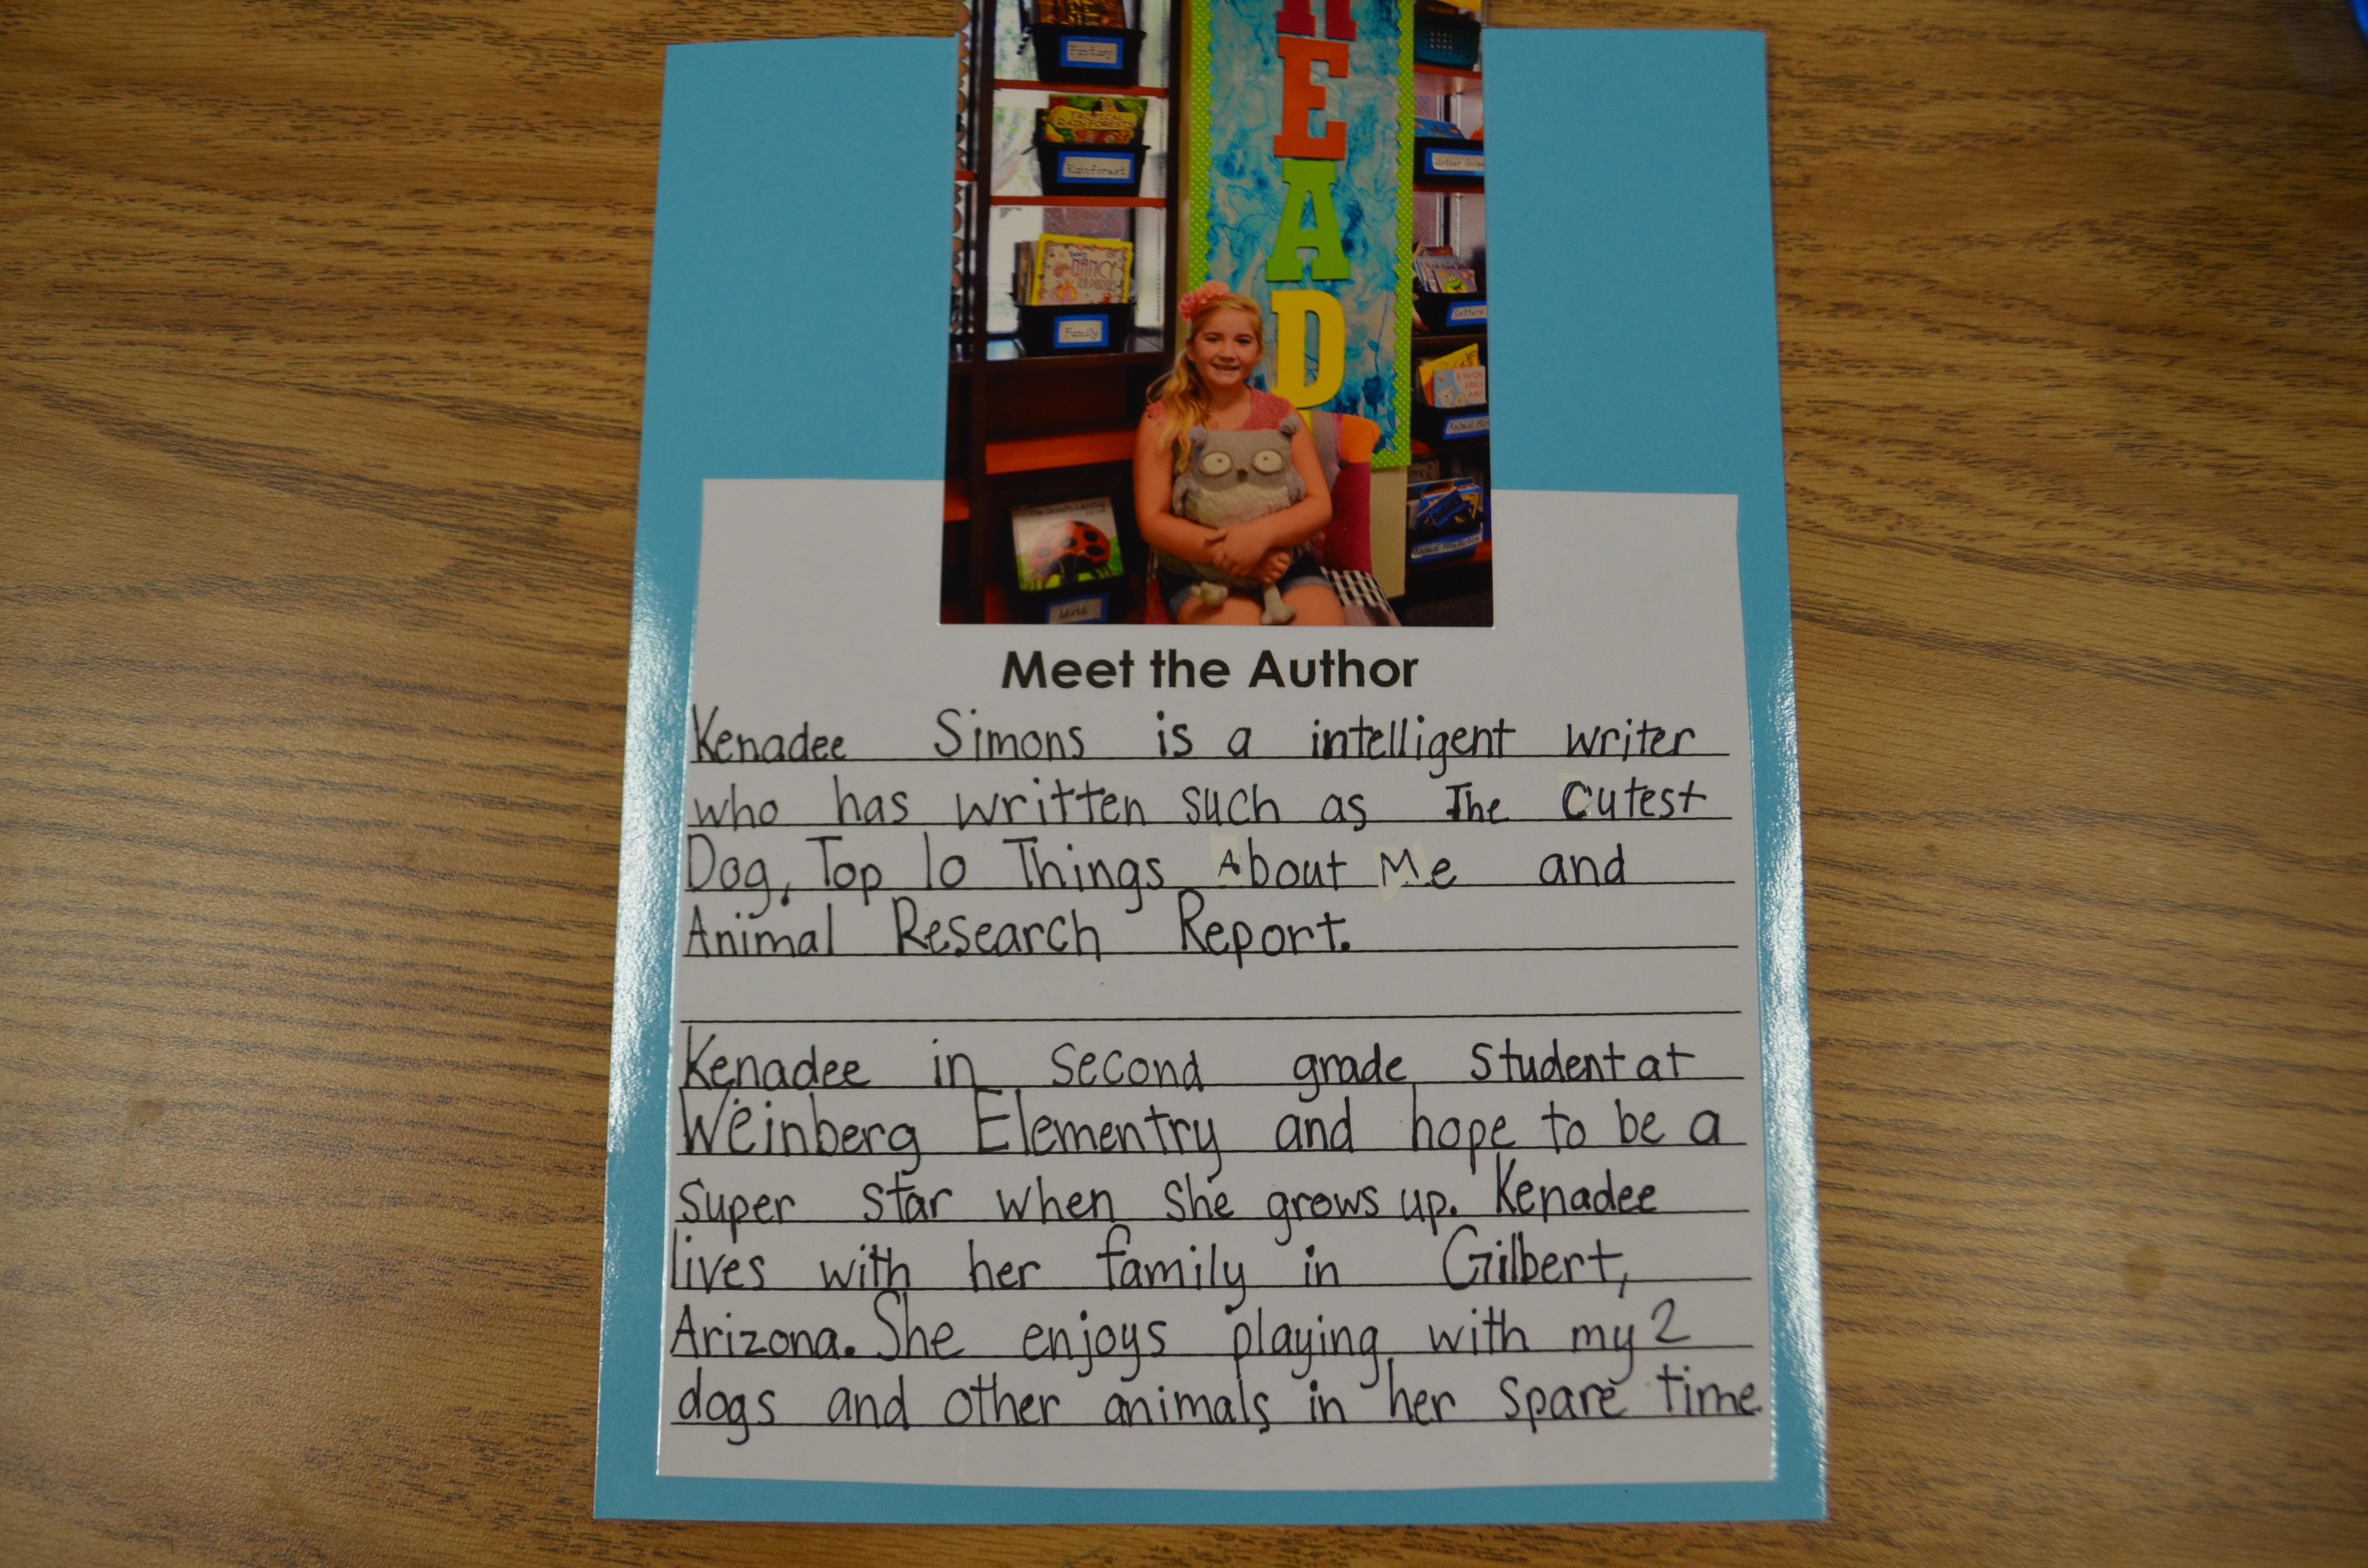 READ
Fantasy
TROPICAL RAINFOREST
Rainforest
NANCY
Family
Letters
The Grouchy Ladybug
Math
Meet the Author
Kenadee Simons is a intelligent writer
who has written such as The Cutest
Dog, Top 10 Things About Me and
Animal Research Report.
Kenadee in second grade student at
Weinberg Elementry and hope to be a
super star when she grows up. Kenadee
lives with her family in Gilbert,
Arizona. She enjoys playing with my 2
dogs and other animals in her spare time.